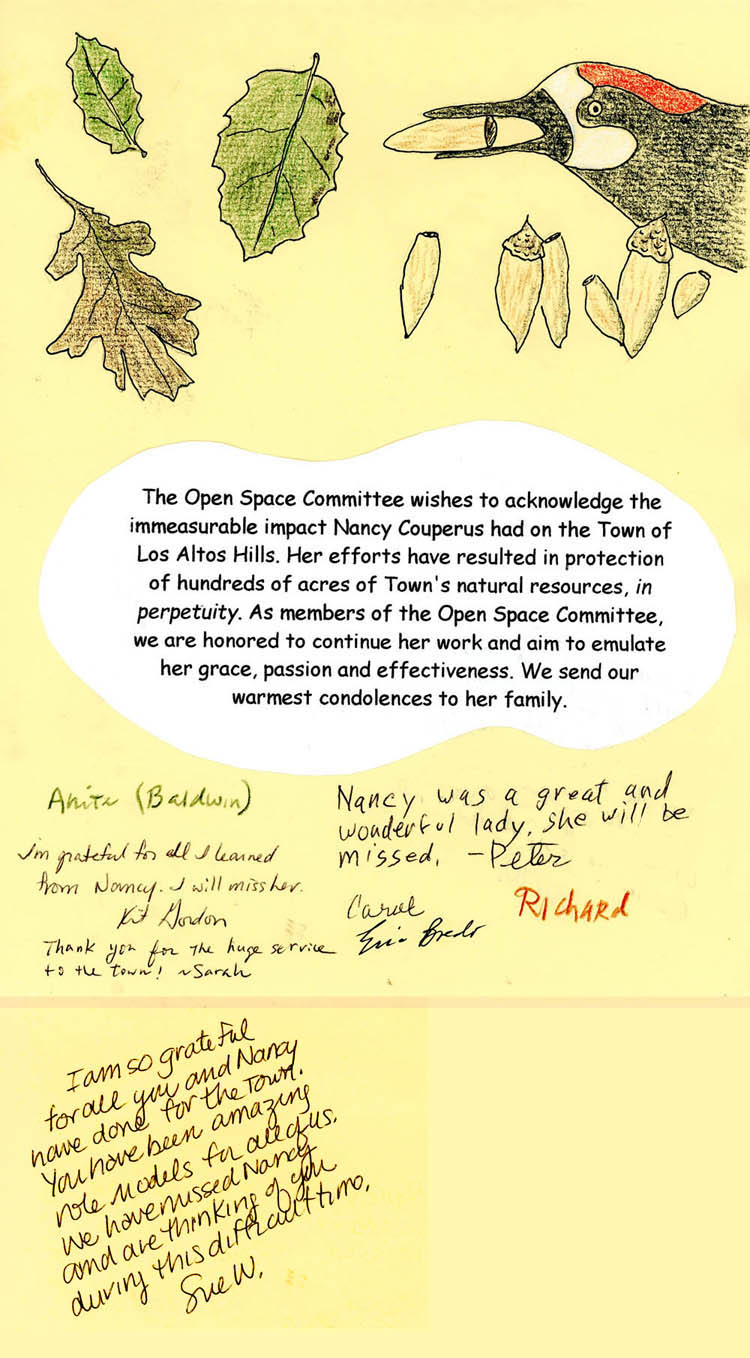 The Open Space Committee wishes to acknowledge the
immeasurable impact Nancy Couperus had on the Town of
Los Altos Hills. Her efforts have resulted in protection
of hundreds of acres of Town's natural resources, in
perpetuity. As members of the Open Space Committee,
we are honored to continue her work and aim to emulate
her grace, passion and effectiveness. We send our
warmest condolences to her family.
Anita (Baldwin)
I'm grateful for all I learned
from Nancy. I will miss her.
Kit Gordon
Thank you for the huge service
to the town! ~Sarah
Nancy was a great and
wonderful lady, she will be
missed. -Peter
Carol
Richard
I am so grateful
for all you and Nancy
have done for the Town.
You have been amazing
role models for all of us.
We have missed Nancy
and are thinking of you
during this difficult time.
Sue W.